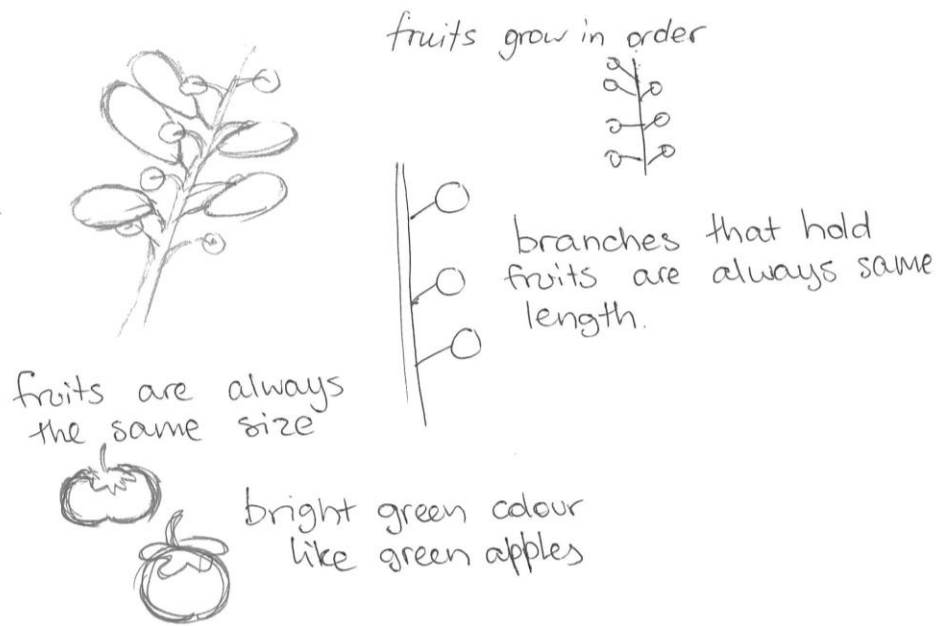 fruits grow in order
branches that hold
fruits are always same
length.
fruits are always
the same size
bright green colour
like green apples